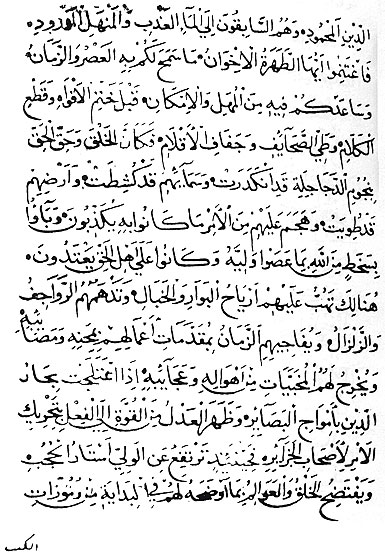 الذين المحموده وهم السابقون الى الماء العذب والمنهل المورود
فاغتنموا ايها الطهرة الاخوان ما سمح لكم به العصر والزمان
وساعدكم فيه من المهل والامكان قبل ختم الافواه وقطع
الكلام وطي الصحايف وجفاف الاقلام فكان الخلق وحق الحق
بنجوم الدجاجلة قد انكدرت وسمائهم قد كشطت وارضهم
قد طويت وهجم عليهم من الامر ما كانوا به يكذبون وباؤا
بسخط من الله بما عصوا وليه وكانوا على اهل الحق يعتدون
هنالك تهب عليهم ارياح البوار والخبال وتدهمهم الرواجف
والزلزال ويفاجيهم الزمان بمقدمات اعمالهم بمحنه ومصائبه
ويخرج لهم المخبيات من اهواله وعجائبه اذا اغتلجت بحار
الدين بامواج البصاير وظهر العدل من القوة الى الفعل بتحريك
الامر لاصحاب الجزاير فحينئذ ترتفع عن الولي استار الحجب
ويفتضح الخلق والعوالم بما اوضحه لهم في البداية من رموزات
الكتب